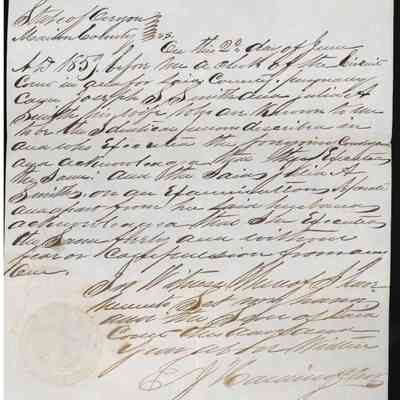 State of Oregon
Marion County } ss.
On this 2d day of June
A.D. 1859, before me a clerk of the Circuit
Court in and for said County, personally
Came Joseph S Smith and Julia A
Smith his wife to me known to
be the identical person described in
and who Executed the foregoing
and acknowledged that they Executed
the Same: and the Said Julia A
Smith, on an Examination Separate
and apart from her Said husband
acknowledged that She Executed
the Same freely and without
fear or Compulsion from any
one.
In Witness Whereof I have
hereunto Set my hand
and the Seal of Said
Court the day and
year above Written